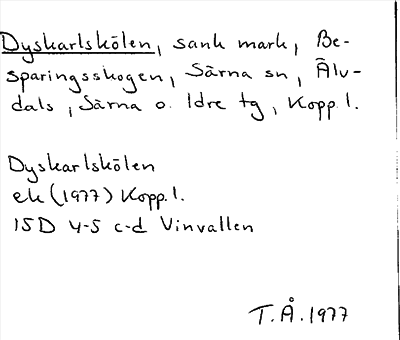 Dyskarlskölen, sank mark, Be-
sparingsskogen, Särna sn, Älv-
dals, Särna o. Idre tg, Kopp. l.
Dyskarlskölen
ek (1977) Kopp. l.
15D 4-5 c-d Vinvallen
T.Å. 1977